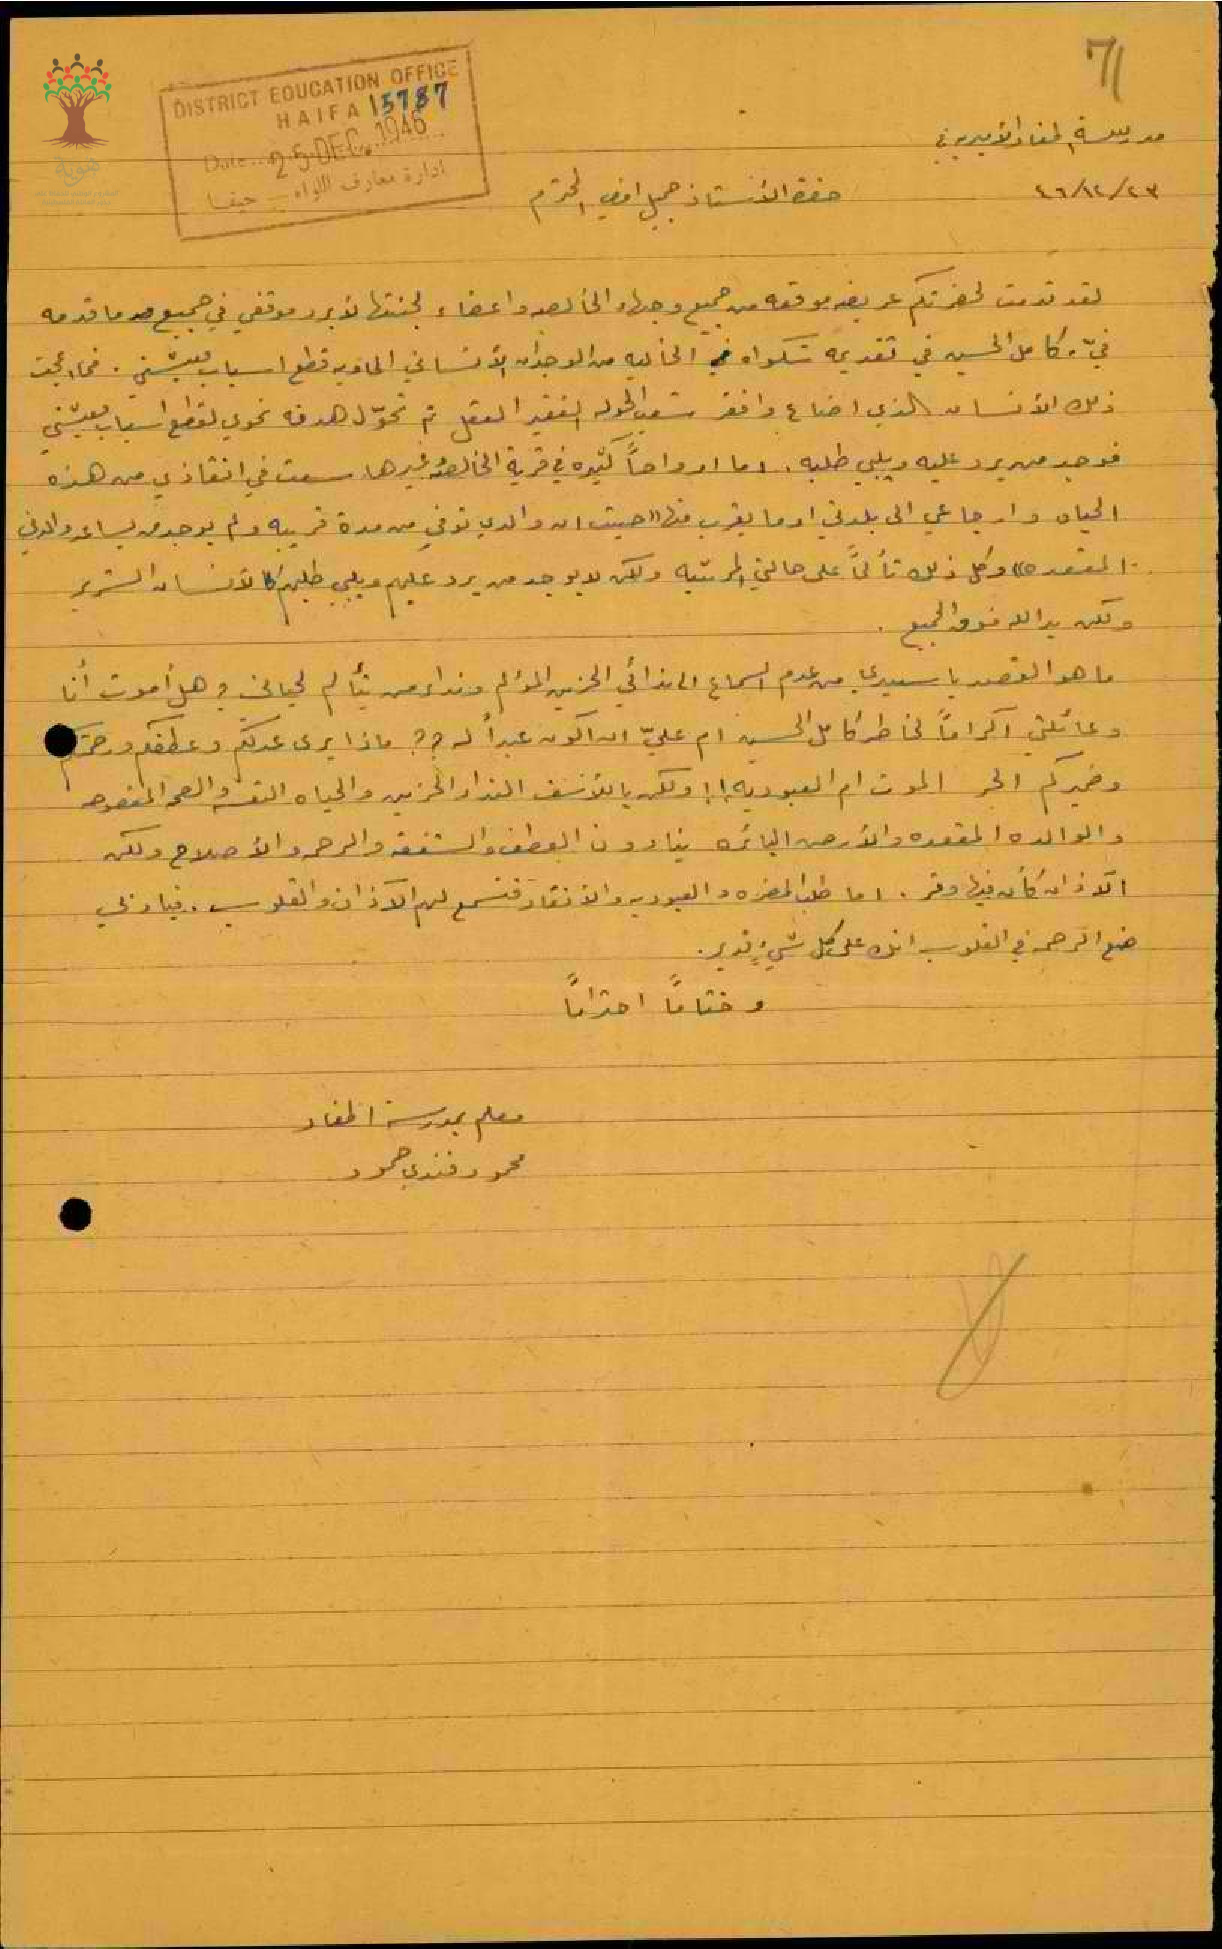 71
DISTRICT EDUCATION OFFICE
HAIFA 15787
Date 25 DEC 1946
ادارة معارف اللواء - حيفا
هوية
مدرسة الاميريه في
٤٦/١٢/٢٣
حضرة الأستاذ جميل افندي المحترم
لقد تقدمت لحضرتكم عريضه موقعه من جميع وجهاء الخالصه واعضاء لجنتها لأبرر موقفي في جميع ما قدمه
فيّ كامل الحسين في تقديمه شكواه الخاليه من الوجدان الأنساني الحاويه قطع اسباب معيشتي . فما
ذلك الأنسان الذي اضاع وافقر شعب الحوله الفقير العقل ثم تحوّل هدفه نحوي لقطع اسباب معيشتي
فوجد من يرد عليه ويلبي طلبه . اما ارواحاً كثيره في قرية الخالصه وغيرها سعت في انقاذي من هذه
الحياه وارجاعي الى بلدتي او ما يقرب منها "حيث ان والدي توفي من مدة قريبه ولم يوجد من يساعد والدتي
المقعده" وكل ذلك تألماً على حالتي ولكن لا يوجد من يرد عليهم ويلبي طلبهم كالأنسان الشرير
ولكن يد الله فوق الجميع .
ما هو القصد يا سيدي من عدم السماع الى ندائي الحزين المؤلم ونداء من يتألم لحياتي ؟ هل أموت أنا
وعائلتي اكراماً لخاطر كامل الحسين ام عليّ ان اكون عبداً له ؟؟ ماذا يرى عدلكم وعطفكم ورحمتكم
وضميركم الحر الموت ام العبوديه !! ولكن ياللأسف النداء الحزين والحياه التعسه والصحه
والوالده المقعده والأرض البائره ينادون العطف والشفقه والرحمه والأصلاح ولكن
الآذان كأن فيها وقر . اما طلب المضره والعبوديه والأنتقاد فتسمع لهم الآذان والقلوب . فيا ربي
ضع الرحمه في القلوب انك على كل شيءٍ قدير .
وختاماً احتراماً
معلم بمدرسة
محمود فندي حمود